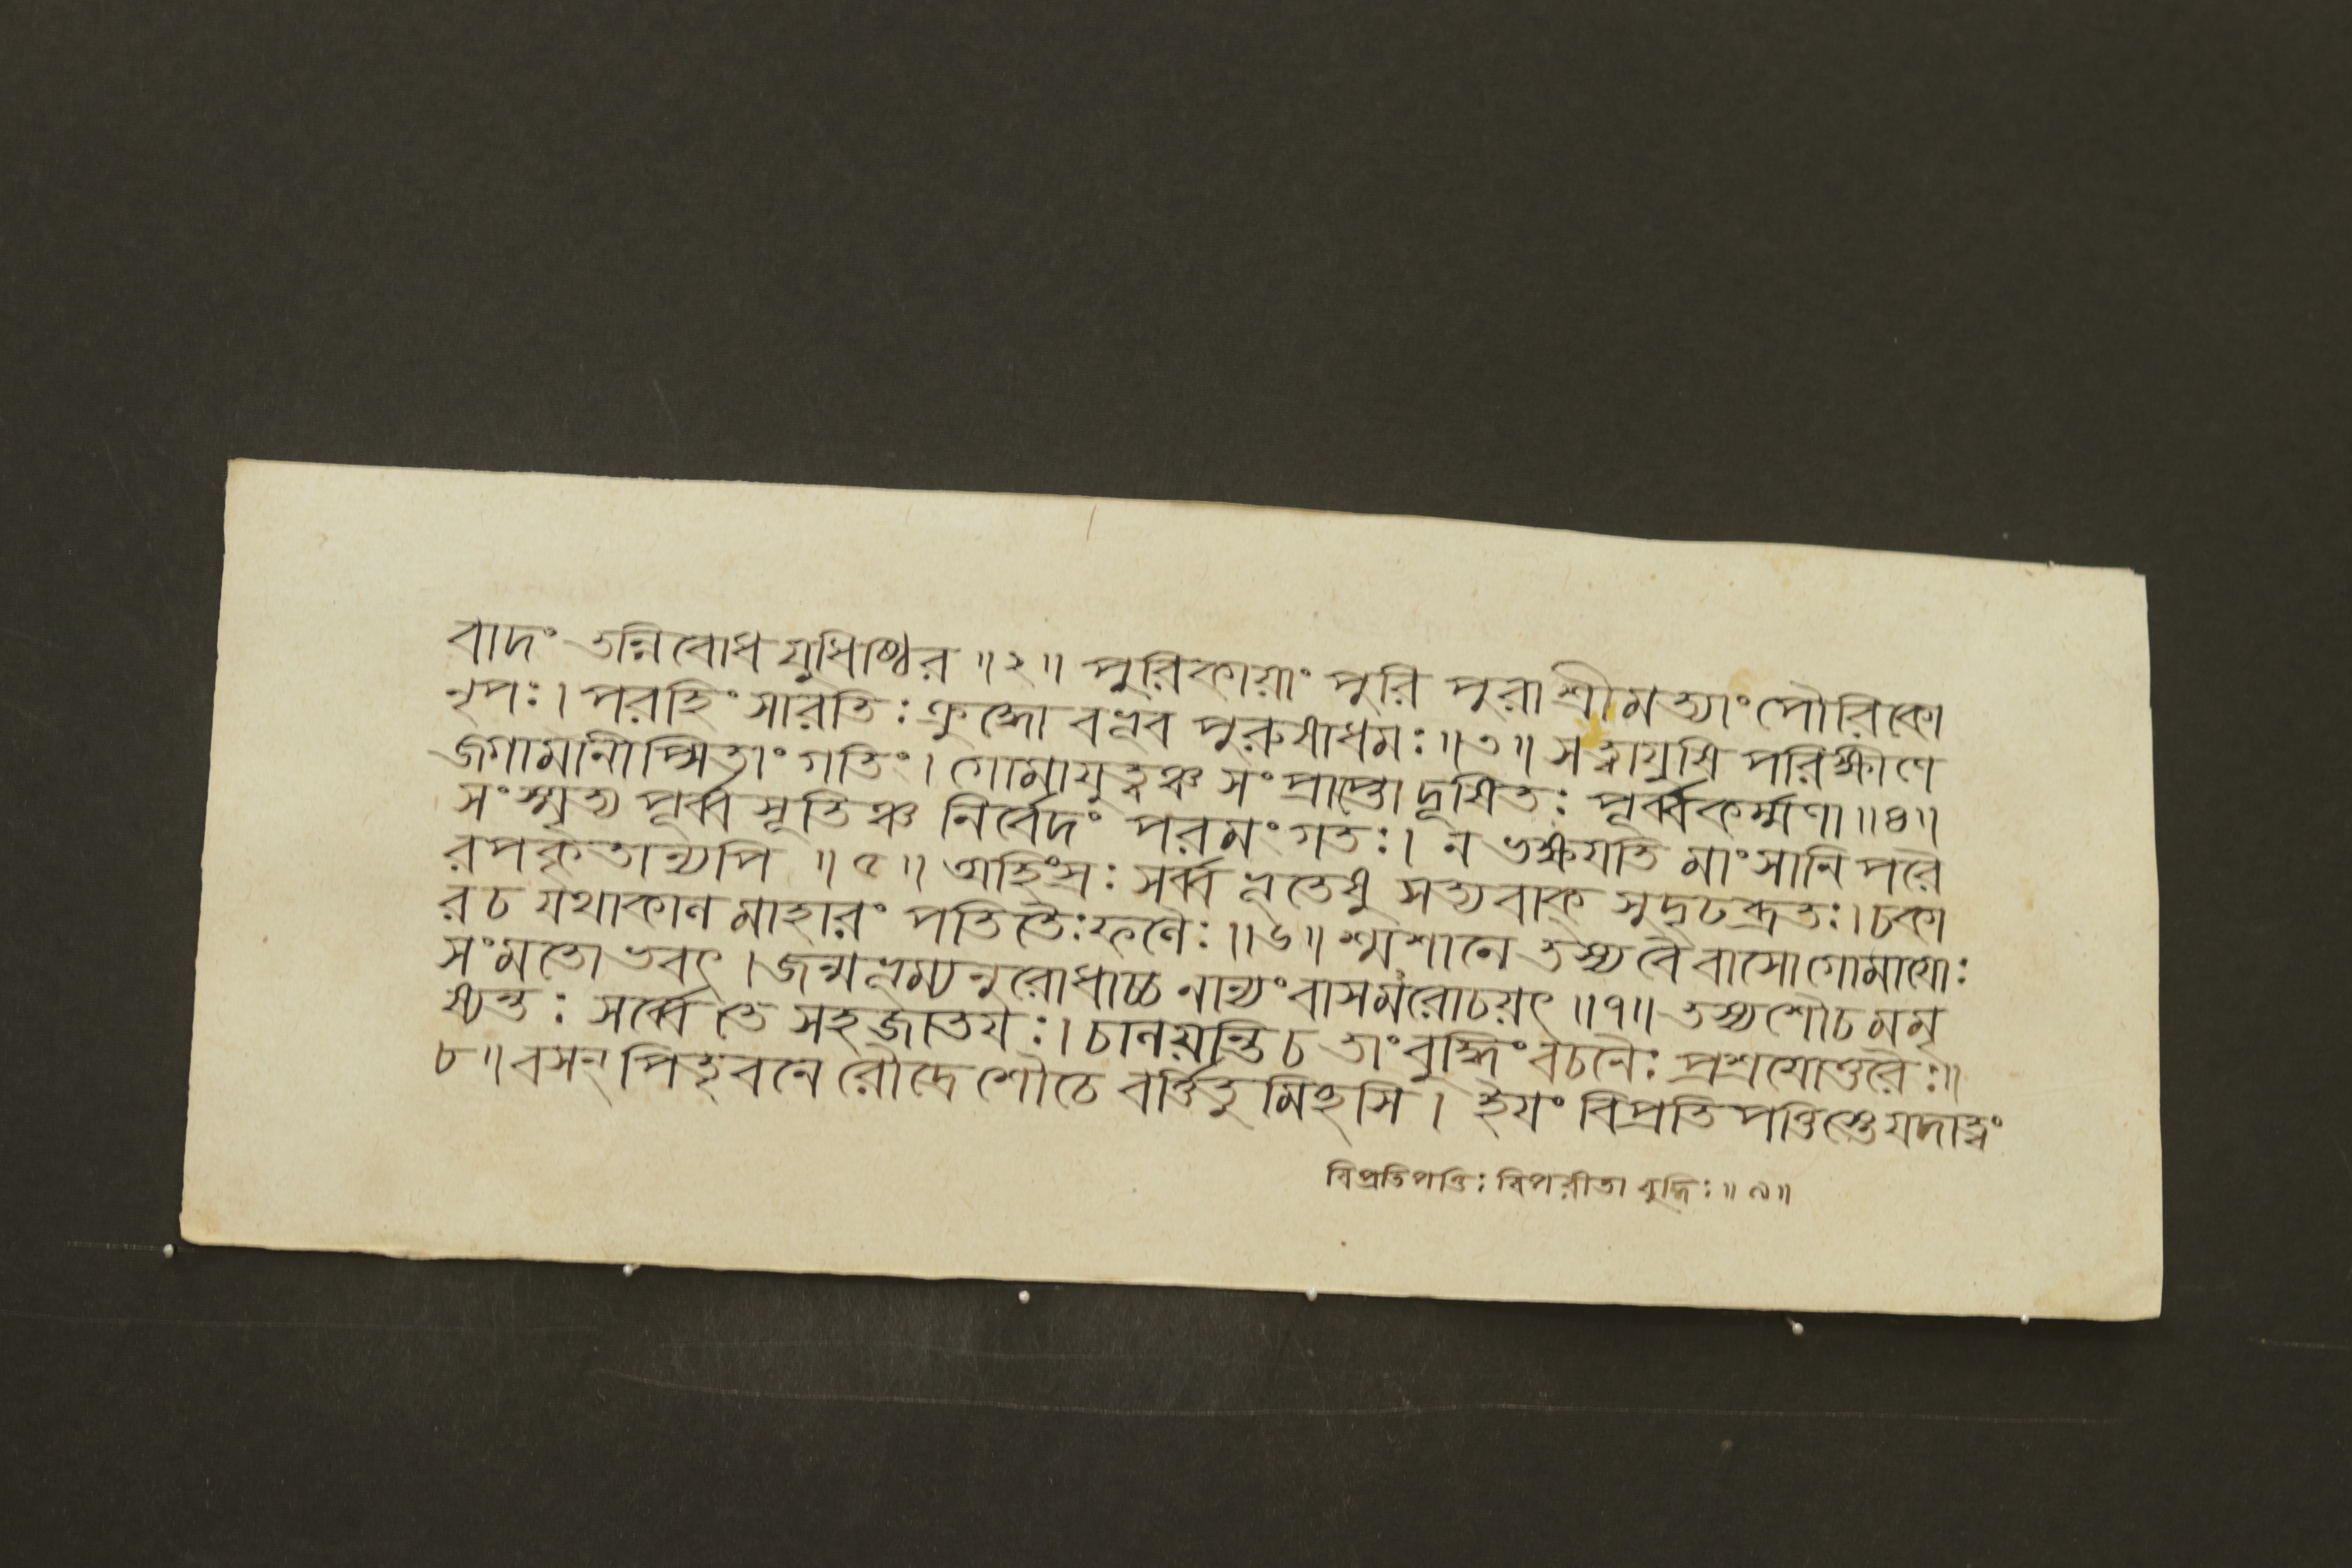 বাদং তন্নিবোধ যুধিষ্ঠির ॥২॥ পুরিকায়াং পুরি পুরা শ্রীমত্যাং পৌরিকো
নৃপঃ। পরহিংসারতিঃ ক্রুদ্ধো বভূব পুরুষাধমঃ॥৩॥ সত্বায়ুষি পরিক্ষীণে
জগামানীপ্সিতাং গতিং। গোমায়ুত্বঞ্চ সংপ্রাপ্তো দূষিতঃ পূর্ব্বকর্ম্মণা॥৪॥
সংস্মৃত্য পূর্ব্বসূতিঞ্চ নির্বেদং পরমং গতঃ। ন ভক্ষয়তি মাংসানি পরৈ
রপকৃতান্যপি ॥৫॥ অহিংস্রঃ সর্ব্বভূতেষু সত্যবাক্ সুদৃঢব্রতঃ। চকা
র চ যথাকাল মাহারং পতিতৈঃ ফলৈঃ॥৬॥ শ্মশানে তস্য বৈ বাসো গোমায়োঃ
সংমতো ভবৎ। জন্মভূম্যনুরোধাচ্চ নান্যং বাসমরোচয়ৎ॥৭॥ তস্য শৌচমমৃ
ষ্যন্তঃ সর্ব্বে তে সহজাতয়ঃ। চালয়ন্তি চ তাং বুদ্ধিং বচনৈঃ প্রশ্রয়োত্তরৈঃ॥
৮॥ বসন্ পিতৃবনে রৌদ্রে শৌচে বর্ত্তিতুমিচ্ছসি। ইয়ং বিপ্রতিপত্তিস্তে যদা ত্বং
বিপ্রতিপত্তিঃ বিপরীতা বুদ্ধিঃ॥৯॥